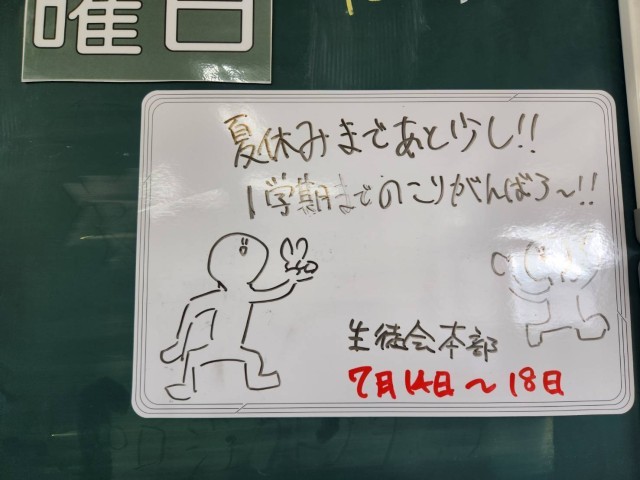 曜日
夏休みまであと少し!!
1学期までのこりがんばろ〜!!
生徒会本部
7月14日〜18日